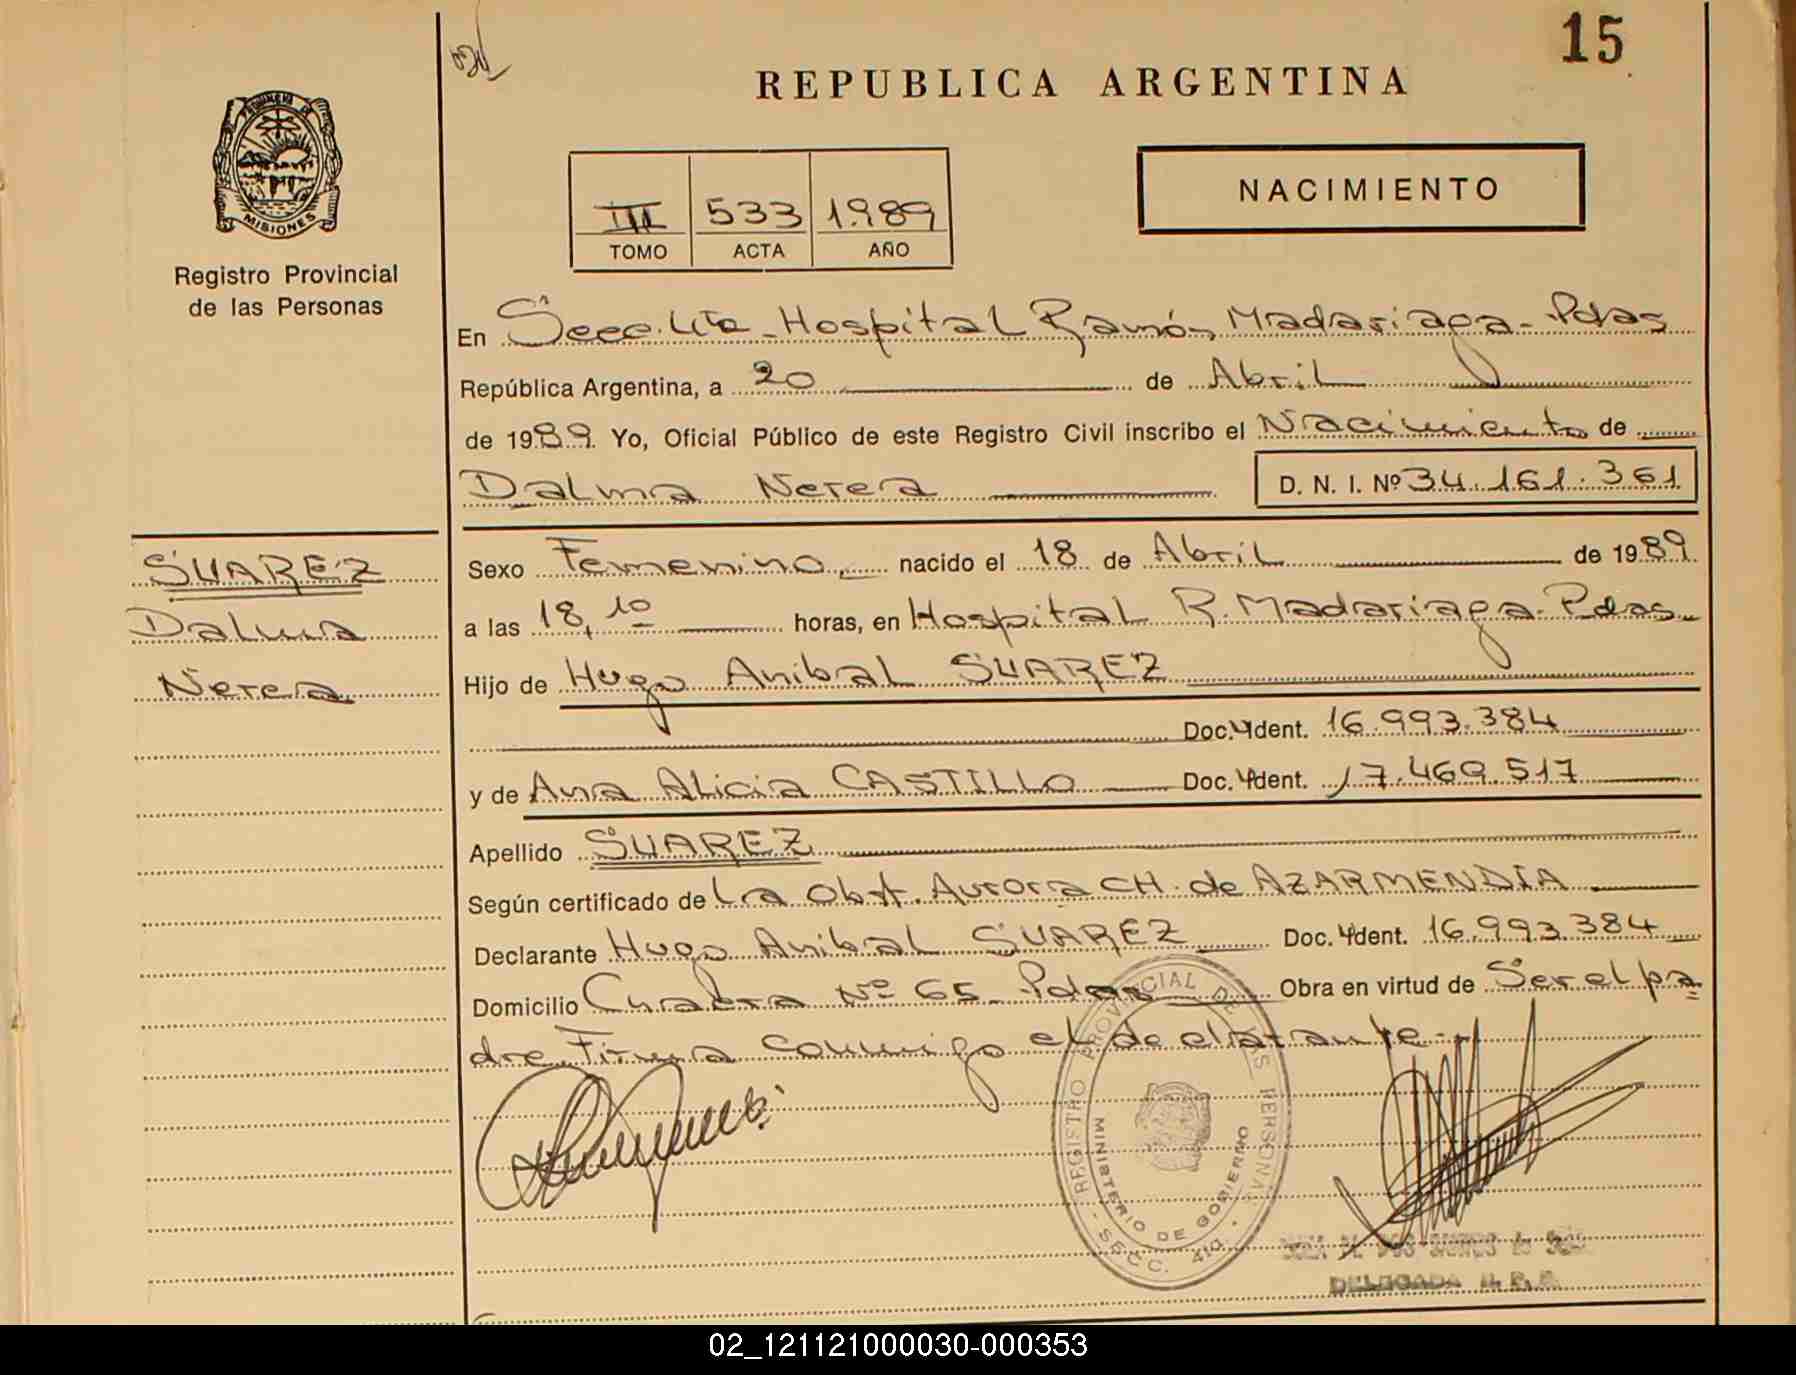 15
REPUBLICA ARGENTINA
PROVINCIA DE
MISIONES
Registro Provincial
de las Personas
NACIMIENTO
III 533 1.989
TOMO ACTA AÑO
En Secc. 4ta - Hospital Ramón Madariaga - Pdas
República Argentina, a 20 de Abril
de 1989. Yo, Oficial Público de este Registro Civil inscribo el Nacimiento de
Dalma Nerea D. N. I. Nº 34.161.361
SUAREZ
Dalma
Nerea
Sexo Femenino nacido el 18 de Abril de 1989
a las 18,10 horas, en Hospital R. Madariaga - Pdas
Hijo de Hugo Anibal SUAREZ
Doc. Ident. 16.993.384
y de Ana Alicia CASTILLO Doc. Ident. 17.469.517
Apellido SUAREZ
Según certificado de La Obst. Aurora CH. de AZARMENDIA
Declarante Hugo Anibal SUAREZ Doc. Ident. 16.993.384
Domicilio Chacra Nº 65 - Pdas Obra en virtud de Ser el pa
dre Firma conmigo el declarante -
REGISTRO PROVINCIAL DE LAS PERSONAS
MINISTERIO DE GOBIERNO
SECC. 4ta.
DELEGADA R. P. P.
02_121121000030-000353